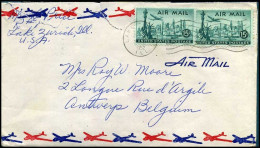 Lake Zurich, Ill.
U.S.A.
AIR MAIL
AIR MAIL
15¢
15¢
UNITED STATES POSTAGE
UNITED STATES POSTAGE
Air Mail
Mrs Roy W. Moore
2 Longue Rue d'Argile
Antwerp Belgium